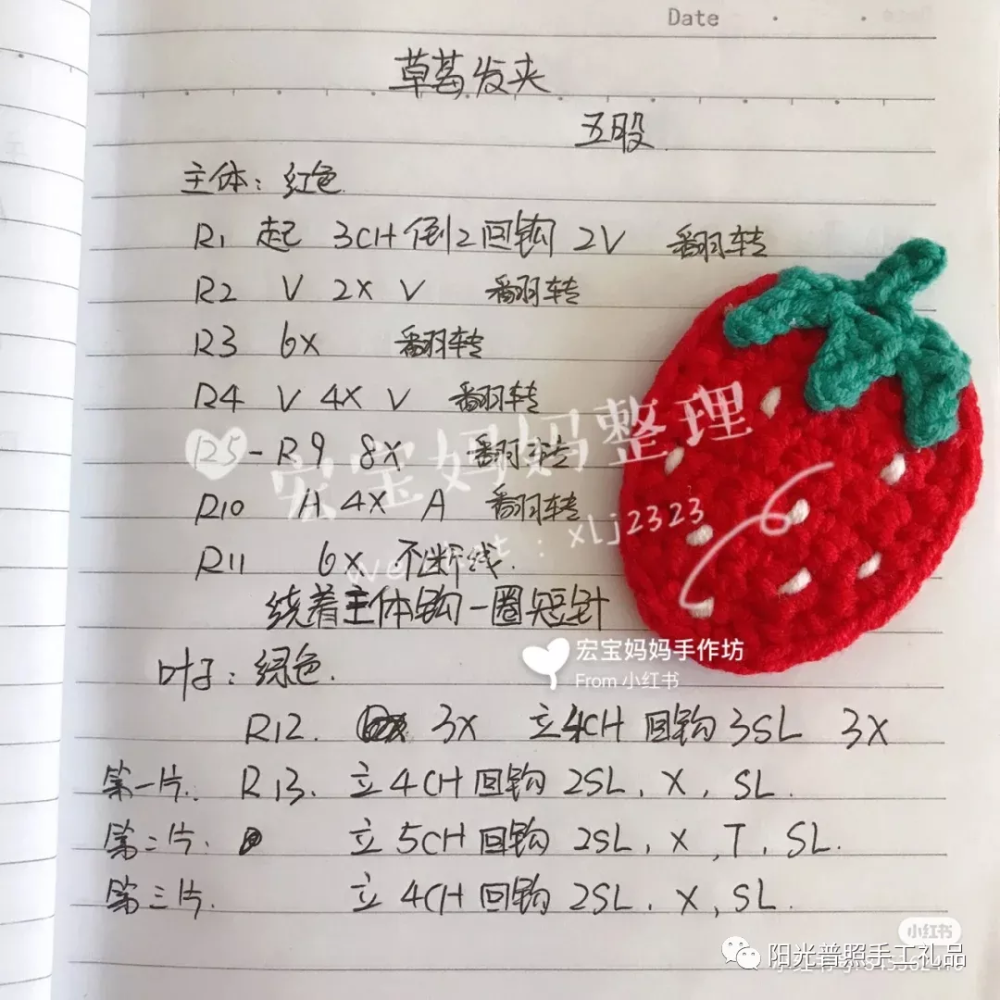 Date
草莓发夹
五股
主体：红色
R1 起 3CH 倒2回钩 2V 翻转
R2 V 2X V 翻转
R3 6X 翻转
R4 V 4X V 翻转
R5-R9 8X 翻转
R10 A 4X A 翻转
R11 6X 不断线.
绕着主体钩一圈短针
叶子：绿色.
R12. 3X 立4CH 回钩 3SL 3X
第一片. R13. 立4CH 回钩 2SL, X, SL.
第二片. 立5CH 回钩 2SL, X, T, SL.
第三片. 立4CH 回钩 2SL, X, SL.
宏宝妈妈整理
: xlj2323
宏宝妈妈手作坊
From 小红书
小红书
阳光普照手工礼品